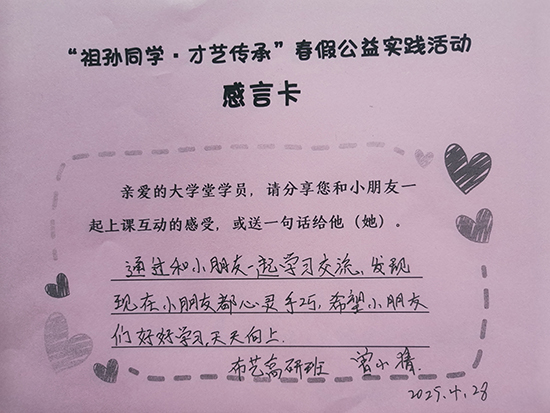 “祖孙同学·才艺传承”春假公益实践活动
感言卡
亲爱的大学堂学员，请分享您和小朋友一
起上课互动的感受，或送一句话给他（她）。
通过和小朋友一起学习交流，发现
现在小朋友都心灵手巧，希望小朋友
们好好学习，天天向上.
布艺高研班 曾小精.
2025.4.28